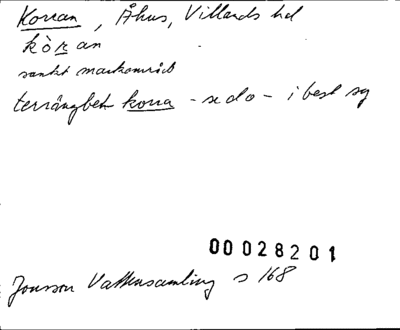 Korran, Åhus, Villands hd
kòran
sankt markområd
terrängbet korra - se do - i best sg
00028201
Jonsson Vattensamling s 168